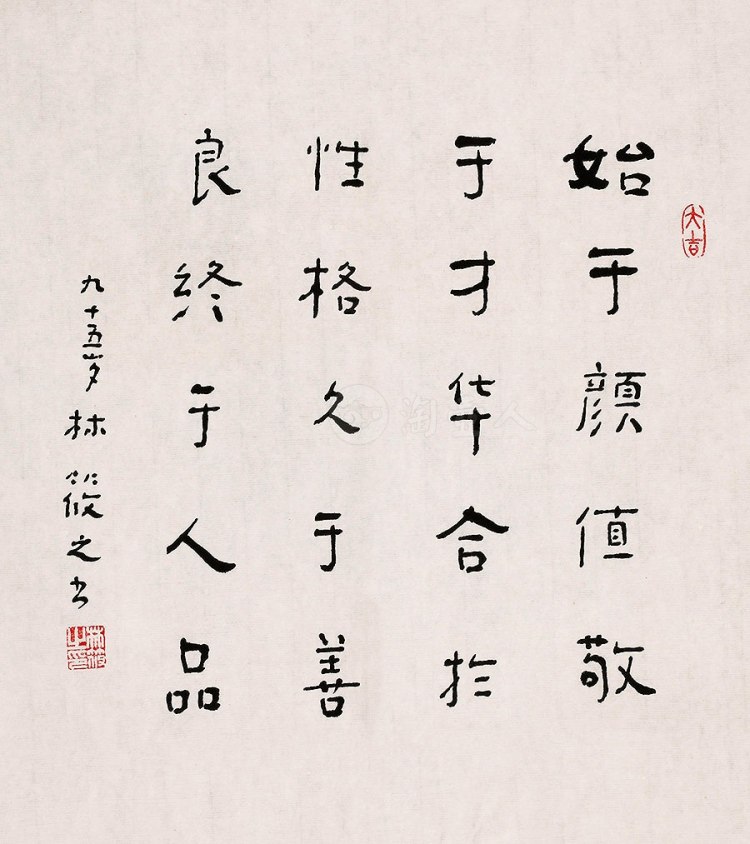 大吉
始于颜值敬
于才华合於
性格久于善
良終于人品
九十五岁林筱之书
林筱之印